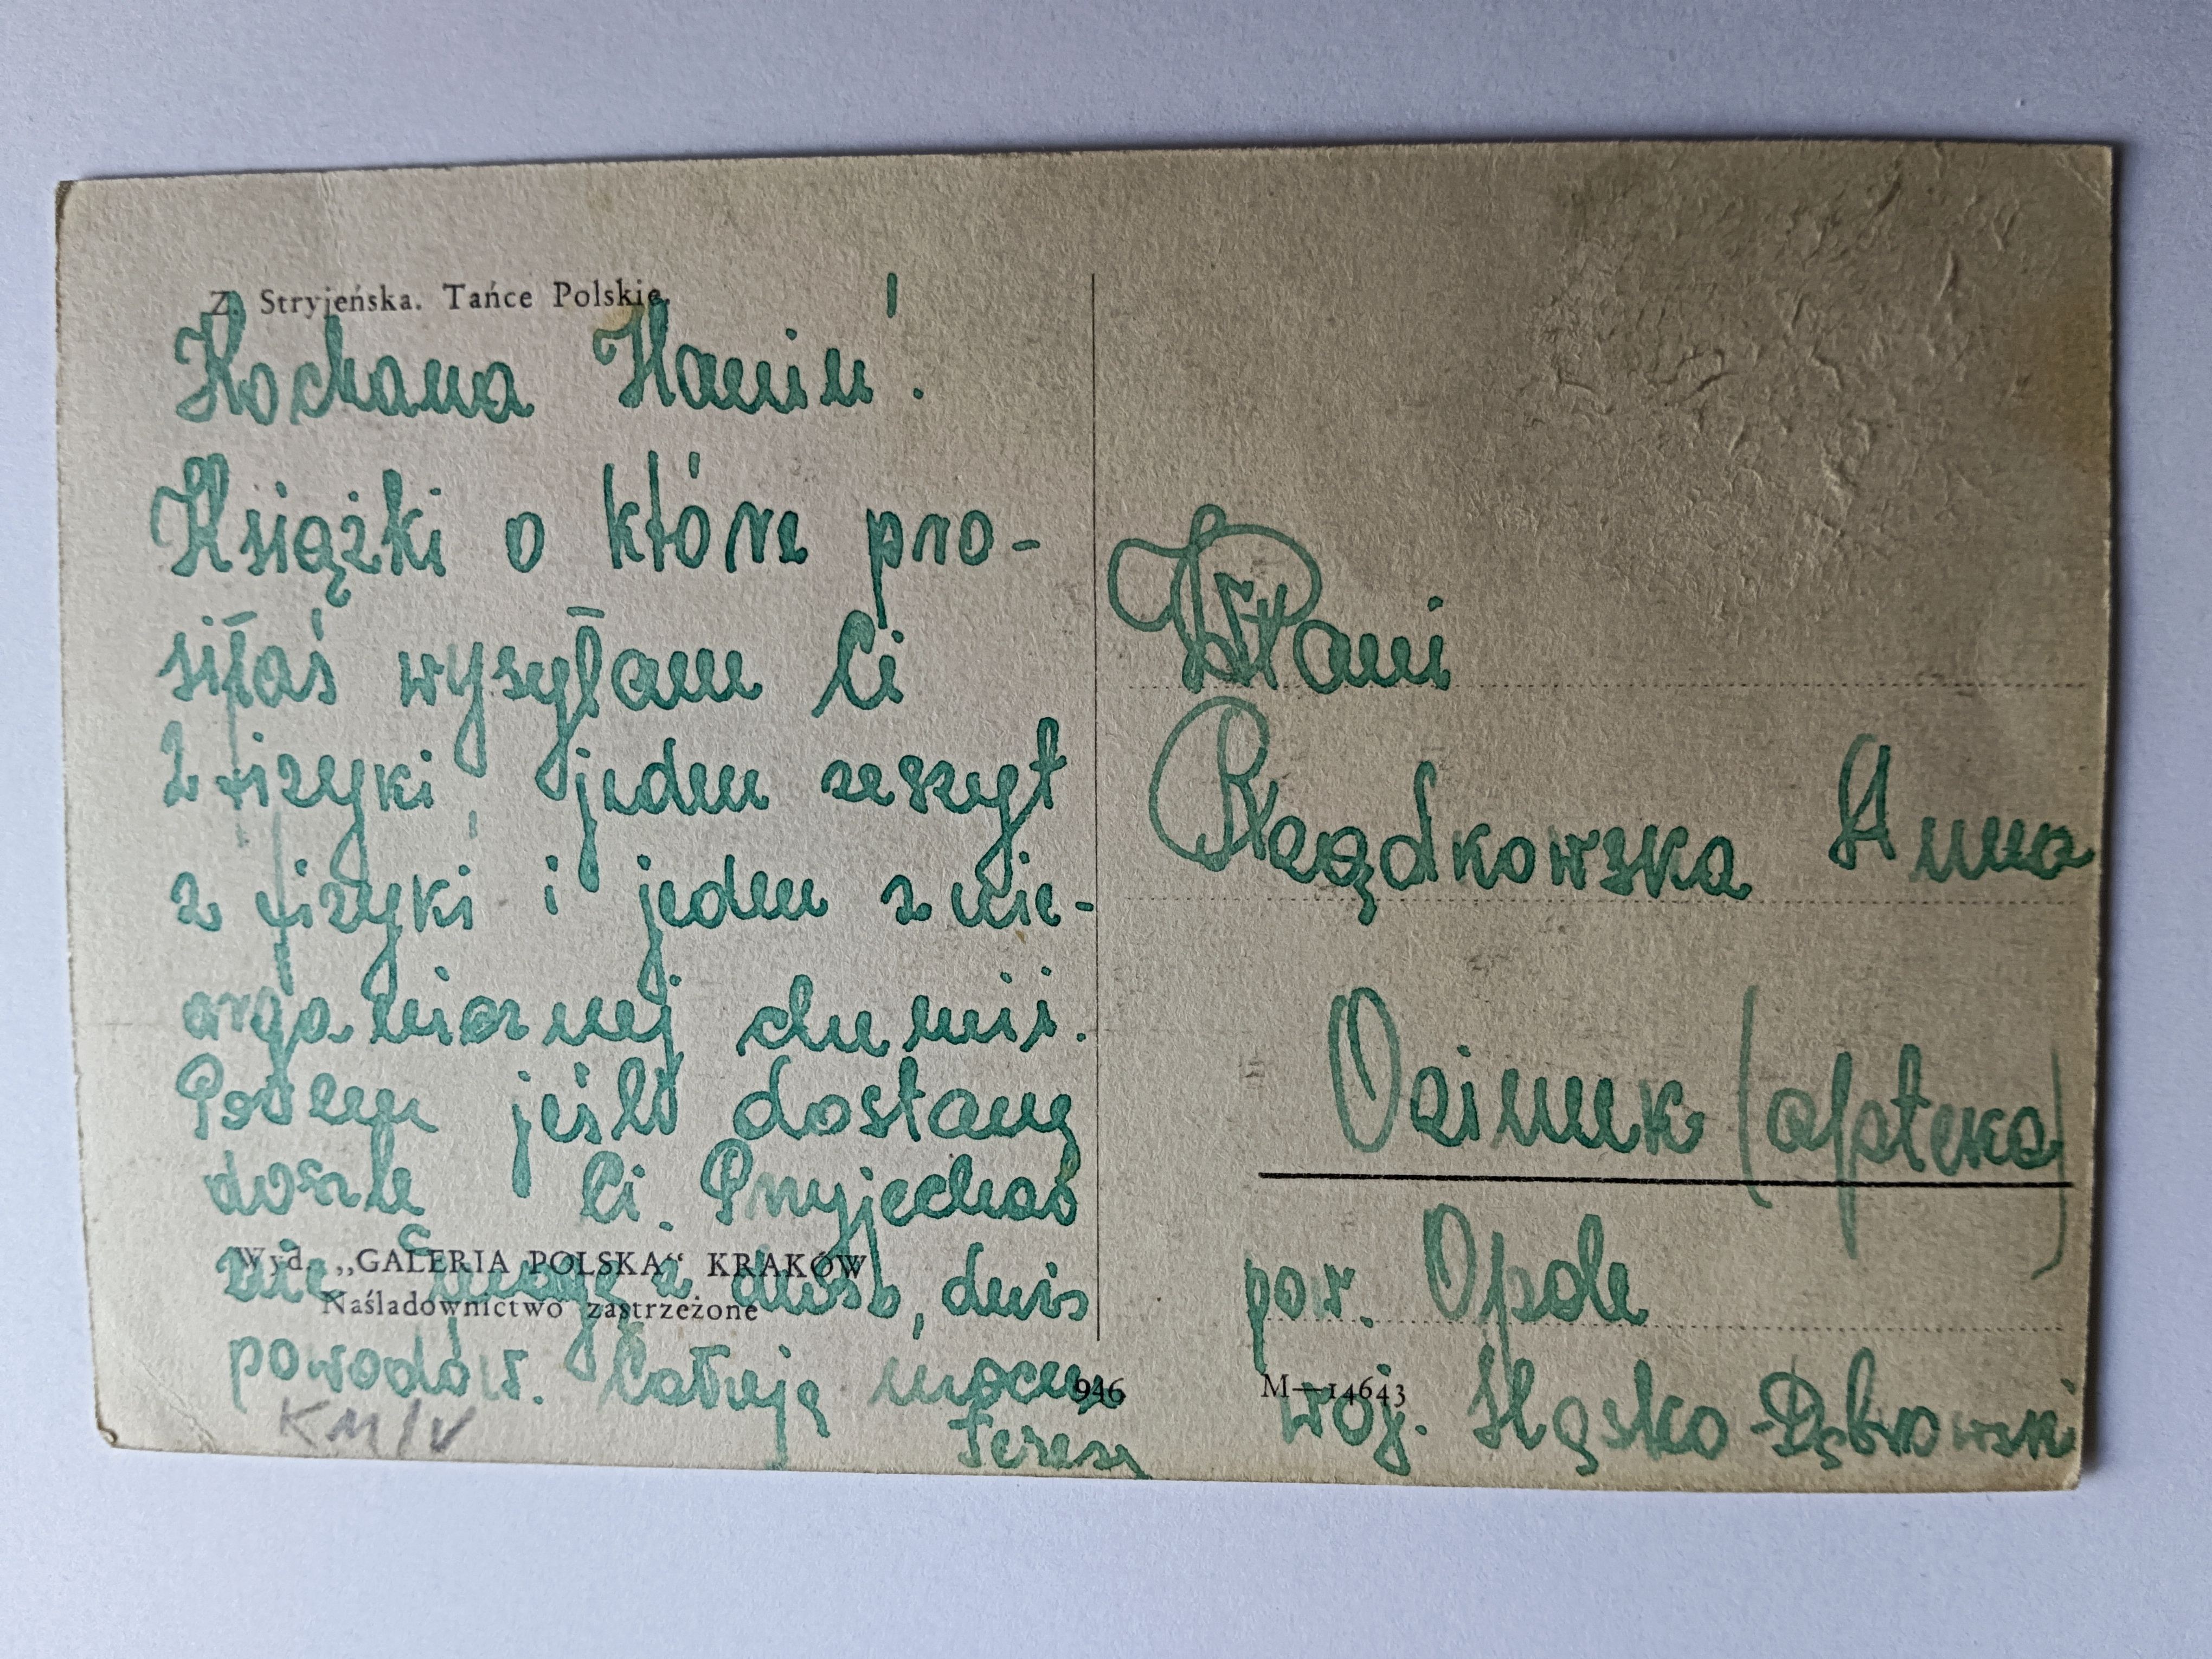 Z. Stryjeńska. Tańce Polskie.
Kochana Haniu!
Książki o które pro-
siłaś wysyłam Ci
2 fizyki, jeden zeszyt
z fizyki i jeden z nie-
organicznej chemii.
Potem jeśli dostanę
doszlę Ci. Przyjechać
nie mogę z dusb, dwis
powodów. Całuję mocno
Teresa
Wyd. „GALERIA POLSKA“ KRAKÓW
Naśladownictwo zastrzeżone
KM/V
946
M—14643
WPani
Anna
Ozimek (apteka)
pow. Opole
woj. Śląsko-Dąbrowski